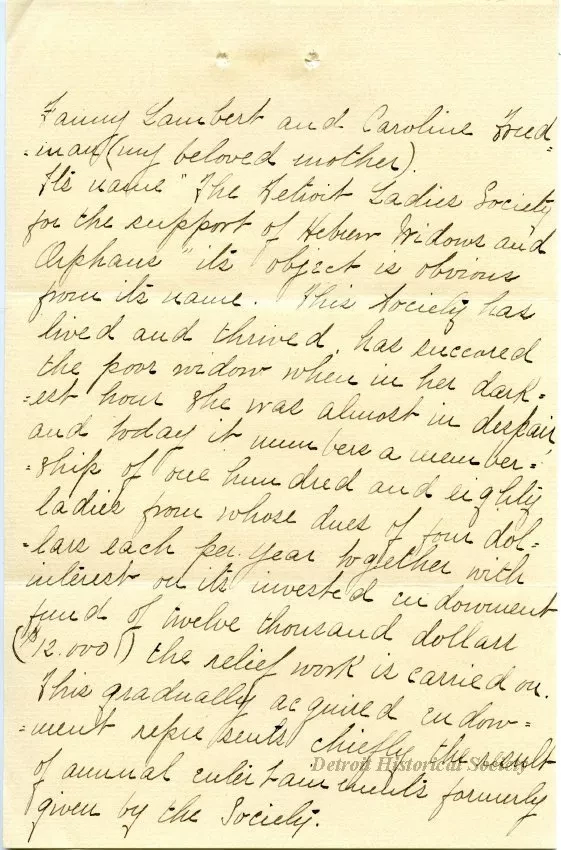 Fanny Lambert and Caroline Fried=
=man (my beloved mother).
It's name "The Detroit Ladies Society
for the support of Hebrew Widows and
Orphans" it's object is obvious
from it's name. This Society has
lived and thrived, has succored
the poor widow when in her dark=
=est hour she was almost in despair,
and today it numbers a member=
=ship of one hundred and eighty
ladies from whose dues of four dol=
=lars each per year together with
interest on its invested endowment
fund of twelve thousand dollars
($12.000) the relief work is carried on.
This gradually acquired endow=
=ment represents chiefly the result
of annual entertainments formerly
given by the Society.
Detroit Historical Society